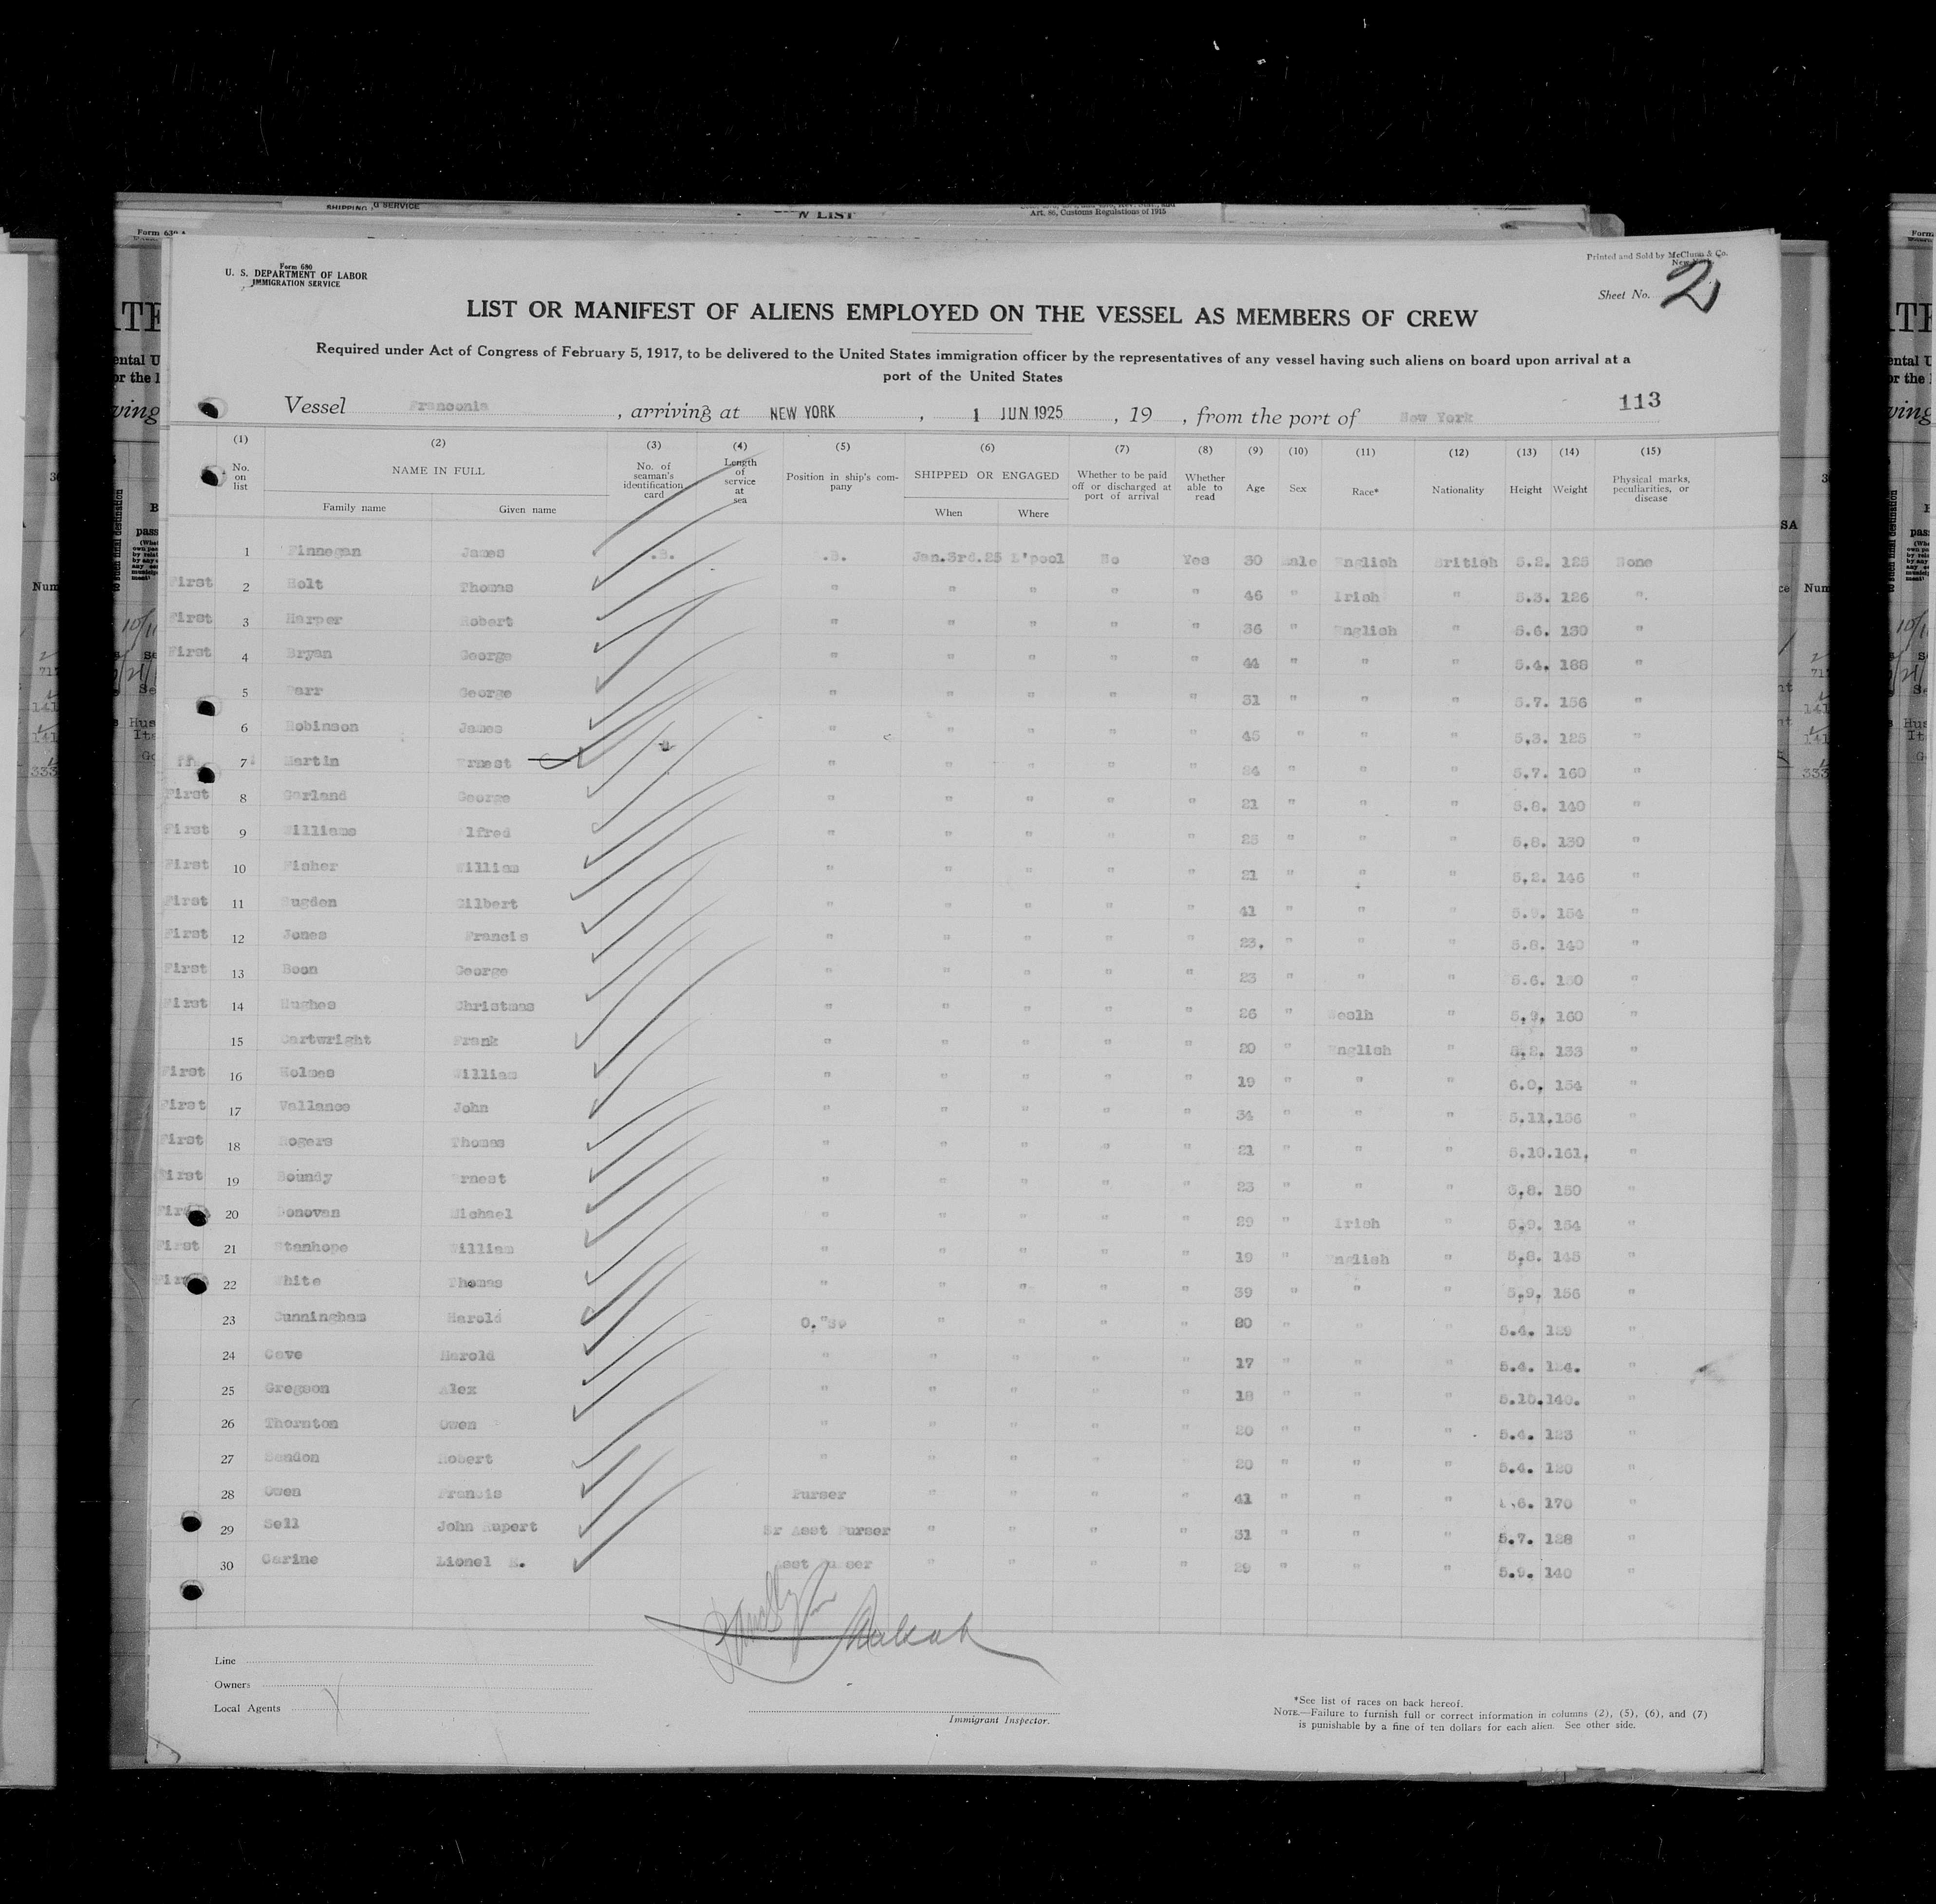 SHIPPING G SERVICE
W LIST
Art. 86, Customs Regulations of 1915
Form 680
U. S. DEPARTMENT OF LABOR
IMMIGRATION SERVICE
Printed and Sold by McClunn & Co.
New York.
Sheet No. 2
LIST OR MANIFEST OF ALIENS EMPLOYED ON THE VESSEL AS MEMBERS OF CREW
Required under Act of Congress of February 5, 1917, to be delivered to the United States immigration officer by the representatives of any vessel having such aliens on board upon arrival at a
port of the United States
Vessel Franconia, arriving at NEW YORK, 1 JUN 1925, 19, from the port of New York 113
(1) (2) (3) (4) (5) (6) (7) (8) (9) (10) (11) (12) (13) (14) (15)
No. on list NAME IN FULL Family name Given name No. of seaman's identification card Length of service at sea Position in ship's company SHIPPED OR ENGAGED When Where Whether to be paid off or discharged at port of arrival Whether able to read Age Sex Race* Nationality Height Weight Physical marks, peculiarities, or disease
1 Finnegan James .B. .B. Jan.3rd.25 L'pool No Yes 30 Male English British 5.2. 125 None
First 2 Holt Thomas " " " " " 46 " Irish " 5.3. 126 "
First 3 Harper Robert " " " " " 36 " English " 5.6. 130 "
First 4 Bryan George " " " " " 44 " " " 5.4. 168 "
5 Parr George " " " " " 31 " " " 5.7. 156 "
6 Robinson James " " " " " 45 " " " 5.3. 125 "
7 Martin Ernest " " " " " 24 " " " 5.7. 160 "
First 8 Garland George " " " " " 21 " " " 5.8. 140 "
First 9 Williams Alfred " " " " " 25 " " " 5.8. 130 "
First 10 Fisher William " " " " " 21 " " " 5.2. 146 "
First 11 Sugden Gilbert " " " " " 41 " " " 5.9. 154 "
First 12 Jones Francis " " " " " 23. " " " 5.8. 140 "
First 13 Boon George " " " " " 23 " " " 5.6. 150 "
First 14 Hughes Christmas " " " " " 26 " Weslh " 5.9. 160 "
15 Cartwright Frank " " " " " 20 " English " 5.2. 133 "
First 16 Holmes William " " " " " 19 " " " 6.0. 154 "
First 17 Vallance John " " " " " 34 " " " 5.11.156 "
First 18 Rogers Thomas " " " " " 21 " " " 5.10.161. "
First 19 Boundy Ernest " " " " " 23 " " " 5.8. 150 "
First 20 Donovan Michael " " " " " 29 " Irish " 5.9. 154 "
First 21 Stanhope William " " " " " 19 " English " 5.8. 145 "
First 22 White Thomas " " " " " 39 " " " 5.9. 156 "
23 Cunningham Harold " " " " 20 " " " 5.4. 129 "
24 Cave Harold " " " " " 17 " " " 5.4. 124. "
25 Gregson Alex " " " " " 18 " " " 5.10.140. "
26 Thornton Owen " " " " " 20 " " " 5.4. 123 "
27 Sendon Robert " " " " " 20 " " " 5.4. 120 "
28 Owen Francis Purser " " " " 41 " " " 5.6. 170 "
29 Sell John Rupert Sr Asst Purser " " " " 31 " " " 5.7. 128 "
30 Carine Lionel Asst Purser " " " " 29 " " " 5.9. 140 "
Line
Owners
Local Agents
Immigrant Inspector.
*See list of races on back hereof.
NOTE.—Failure to furnish full or correct information in columns (2), (5), (6), and (7)
is punishable by a fine of ten dollars for each alien. See other side.